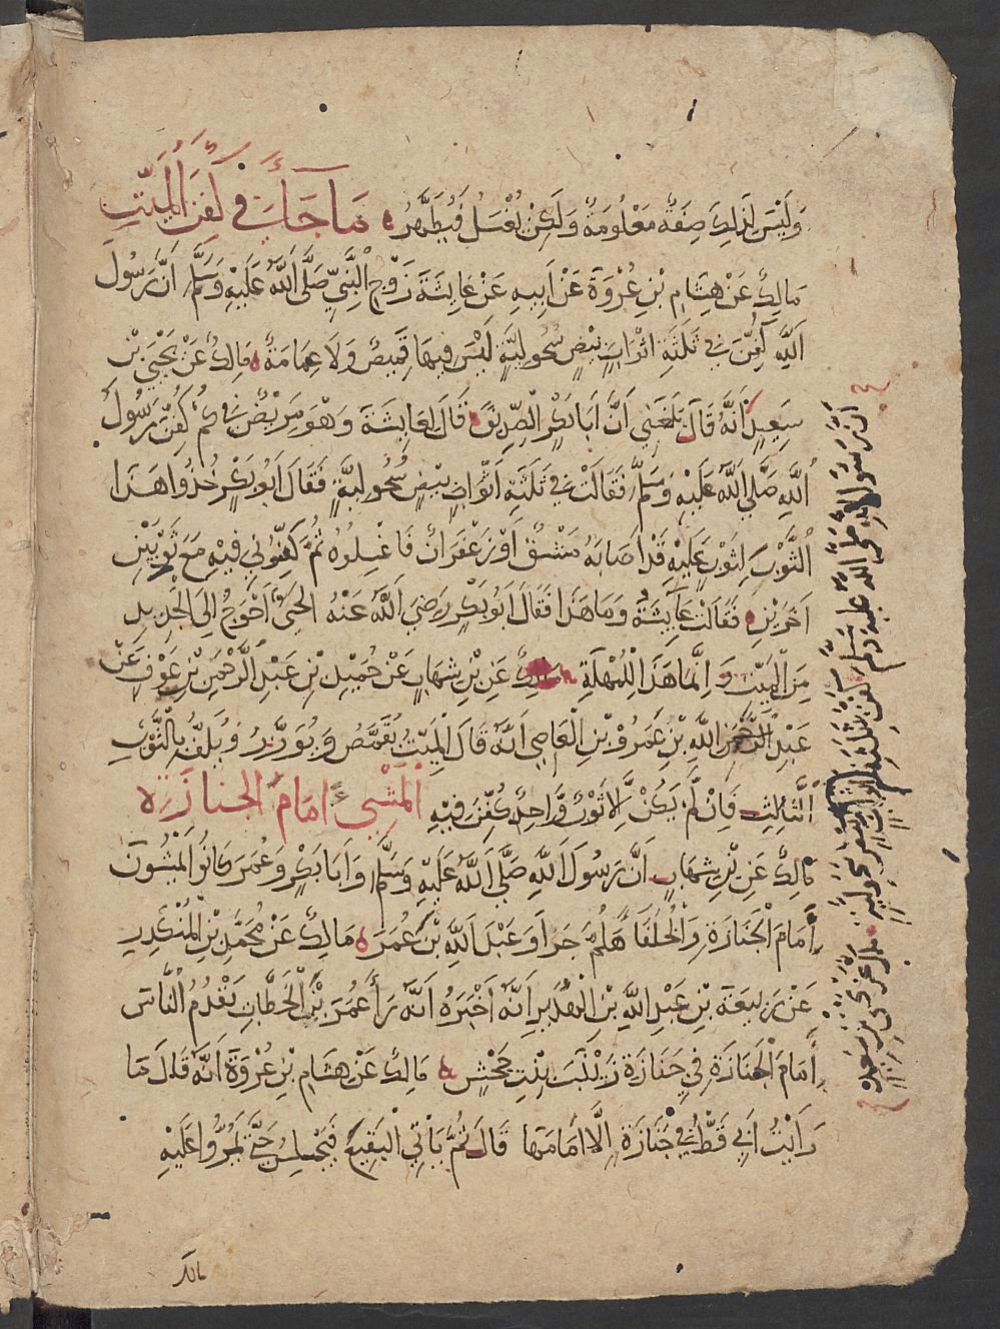 وَلَيْسَ لِذَلِكَ صِفَةٌ مَعْلُومَةٌ وَلَكِنْ يُغْسَلُ فَيُطَهَّرُ ه مَا جَاءَ فِي كَفَنِ الْمَيِّتِ
مَالِكٌ عَنْ هِشَامِ بْنِ عُرْوَةَ عَنْ اَبِيهِ عَنْ عَايِشَةَ زَوْجِ النَّبِيِّ صَلَّى اللَّهُ عَلَيْهِ وَسَلَّمَ اَنَّ رَسُولَ
اللَّهِ كُفِّنَ فِي ثَلَثَةِ اثْوَابٍ بِيْضٍ سُحُولِيَّةٍ لَيْسَ فِيهَا قَمِيصٌ وَلَا عِمَامَةٌ ه مَالِكٌ عَنْ يَحْيَى بْنِ
سَعِيدٍ اَنَّهُ قَالَ بَلَغَنِي اَنَّ اَبَا بَكْرٍ الصِّدِّيقَ قَالَ لِعَايِشَةَ وَهْوَ مَرِيْضٌ فِي كَمْ كُفِّنَ رَسُولُ
اللَّهِ صَلَّى اللَّهُ عَلَيْهِ وَسَلَّمَ فَقَالَتْ فِي ثَلَثَةِ اَثْوَابٍ بِيْضٍ سُحُولِيَّةٍ فَقَالَ اَبُو بَكْرٍ خُذُوا هَذَا
الثَّوْبَ لِثَوْبٍ عَلَيْهِ قَدْ اَصَابَهُ مَشْقٌ اَوْ زَعْفَرَانٌ فَاغْسِلُوهُ ثُمَّ كَفِّنُونِي فِيْهِ مَعَ ثَوْبَيْنِ
اَخَرَيْنِ ه فَقَالَتْ عَايِشَةُ وَمَا هَذَا فَقَالَ اَبُو بَكْرٍ رَضِيَ اللَّهُ عَنْهُ الحَيُّ اَحْوَجُ اِلَى الْجَدِيدِ
مِنَ الْمَيِّتِ وَاِنَّمَا هَذَا لِلْمُهْلَةِ ه مَالِكٌ عَنِ بْنِ شِهَابٍ عَنْ حُمَيْدِ بْنِ عَبْدِ الرَّحْمَنِ بْنِ عَوْفٍ عَنْ
عَبْدِ الرَّحْمَنِ اللَّهِ بْنِ عَمْرِو بْنِ الْعَاصِي اَنَّهُ قَالَ الْمَيِّتُ يُقَمَّصُ وَيُوَزَّرُ وَيُلَفُّ بِالثَّوْبِ
الثَّالِثِ فَاِنْ لَّمْ يَكُنْ اِلَّا ثَوْبٌ وَّاحِدٌ كُفِّنَ فِيْهِ الْمَشْيُ اَمَامَ الجنازَةِ ه
مَالِكٌ عَنِ بْنِ شِهَابٍ اَنَّ رَسُولَ اللَّهِ صَلَّى اللَّهُ عَلَيْهِ وَسَلَّمَ وَاَبَا بَكْرٍ وَعُمَرَ كَانُوا يَمْشُونَ
اَمَامَ الْجَنَازَةِ وَالْخُلَفَا هَلُمَّ جَرًا وَعَبْدَ اللَّهِ بْنَ عُمَرَ ه مَالِكٌ عَنْ مُحَمَّدِ بْنِ الْمُنْكَدِرِ
عَنْ رَبِيعَةَ بْنِ عَبْدِ اللَّهِ بْنِ الْهُدَيرِ اَنَّهُ اَخْبَرَهُ اَنَّهُ رَاَ عُمَرَ بْنَ الْخَطَّابِ يَقْدُمُ النَّاسَ
اَمَامَ الْجَنَازَةِ فِي جَنَازَةِ زَيْنَبَ بِنْتِ جَحْشٍ ه مَالِكٌ عَنْ هِشَامِ بْنِ عُرْوَةَ اَنَّهُ قَالَ مَا
رَاَيْتُ اَبِي قَطُّ فِي جَنَازَةٍ اِلَّا اَمَامَهَا قَالَ ثُمَّ يَأْتِي الْبَقِيعَ فَيَجْلِسُ حَتَّى يَمُرُّوا عَلَيْهِ
مالك
اَنَّ رَسُولَ اللَّهِ صَلَّى اللَّهُ عَلَيْهِ وَسَلَّمَ كُفِّنَ فِي ثَلَثَةِ اَثْوَابٍ بِيضٍ سُحُولِيَّةٍ مالك عَنْ يَحْيَى بْنِ سَعِيدٍ